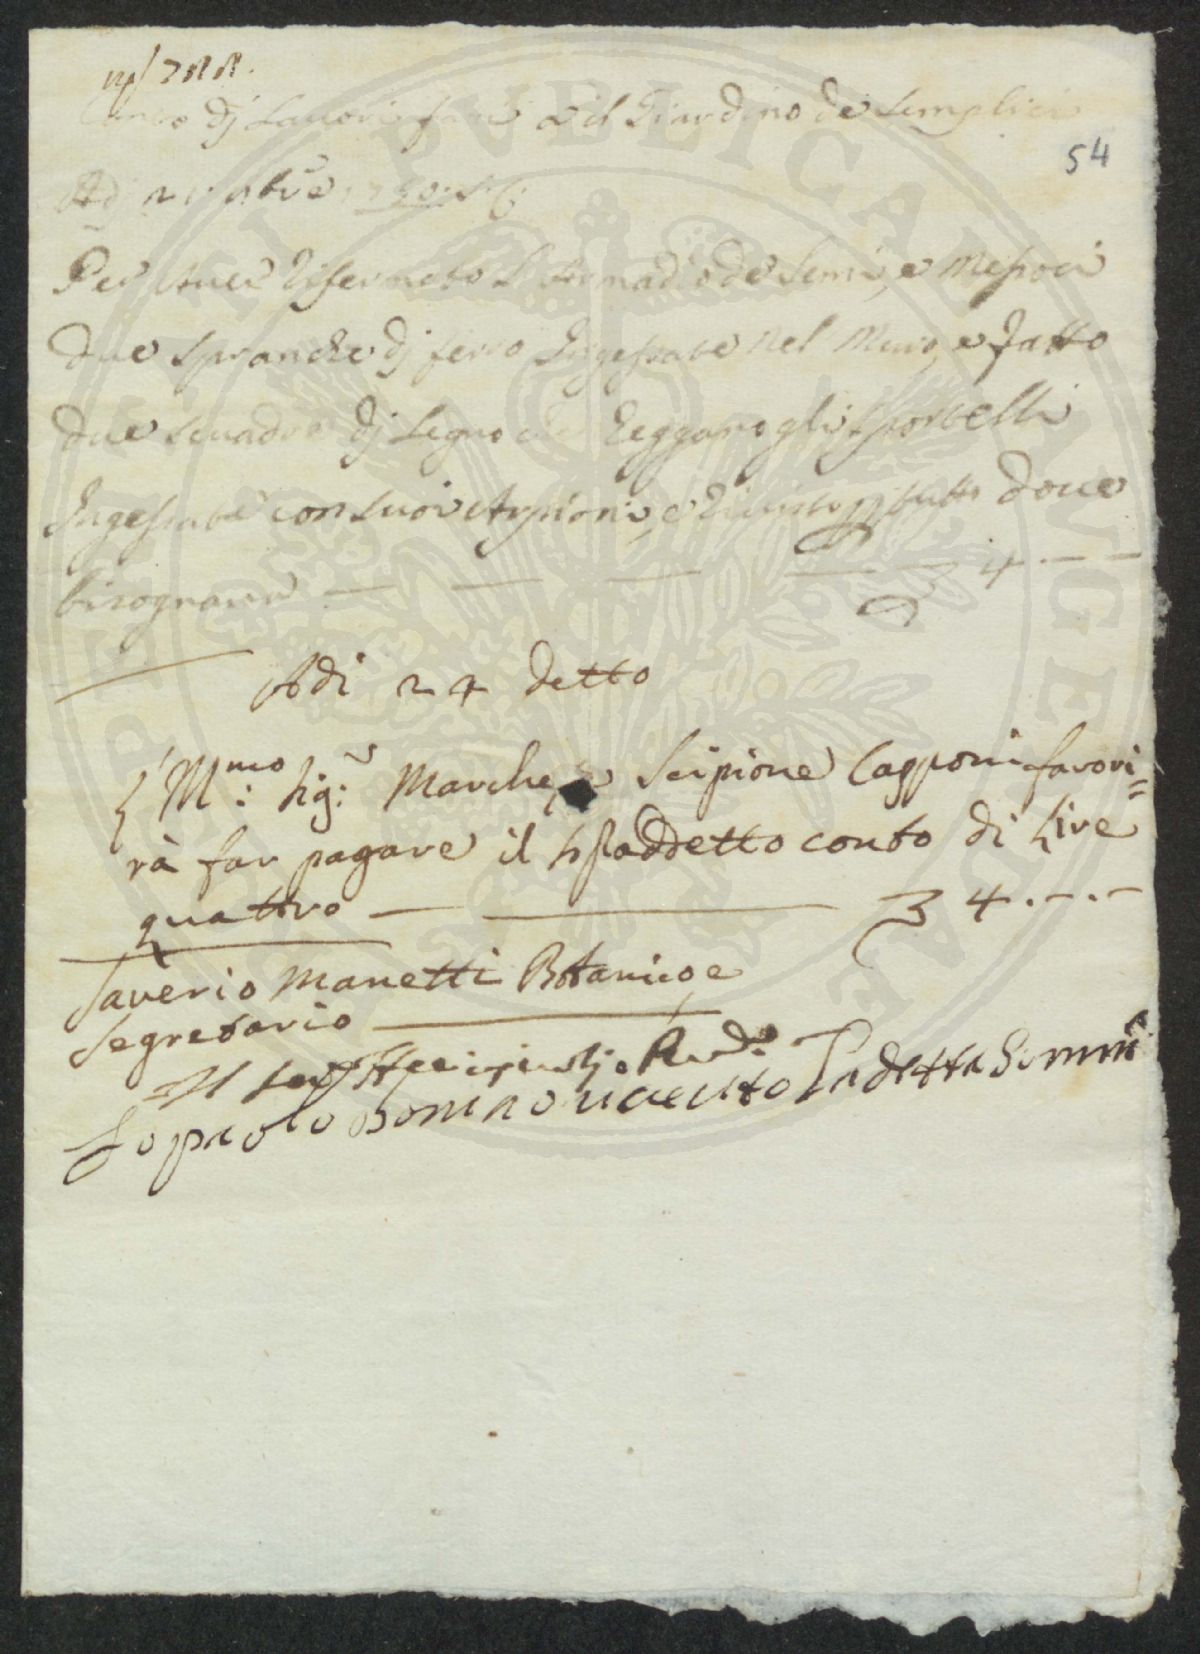 Conto dj Lauori fatti a il Giardino de Semplici
54
Adi
Per Auer Rifermato L Armadio de Semi, e Messoci
due spranche dj ferro Ingessate nel Muro, e fatto
due squadre dj Legno che Reggano gli sportelli
Ingessate con suoi Arpioni, e tutto doue
bisognaua — — — — 4 — —
Adi 24 detto
L'Ill.mo Sig.r Marchese Scipione Capponi favori=
rà far pagare il suddetto conto di Lire
quattro — — 4.-.-
Saverio Manetti Botanico, e
Segretario —
Io paolo Bomino riceuto La detta Somma